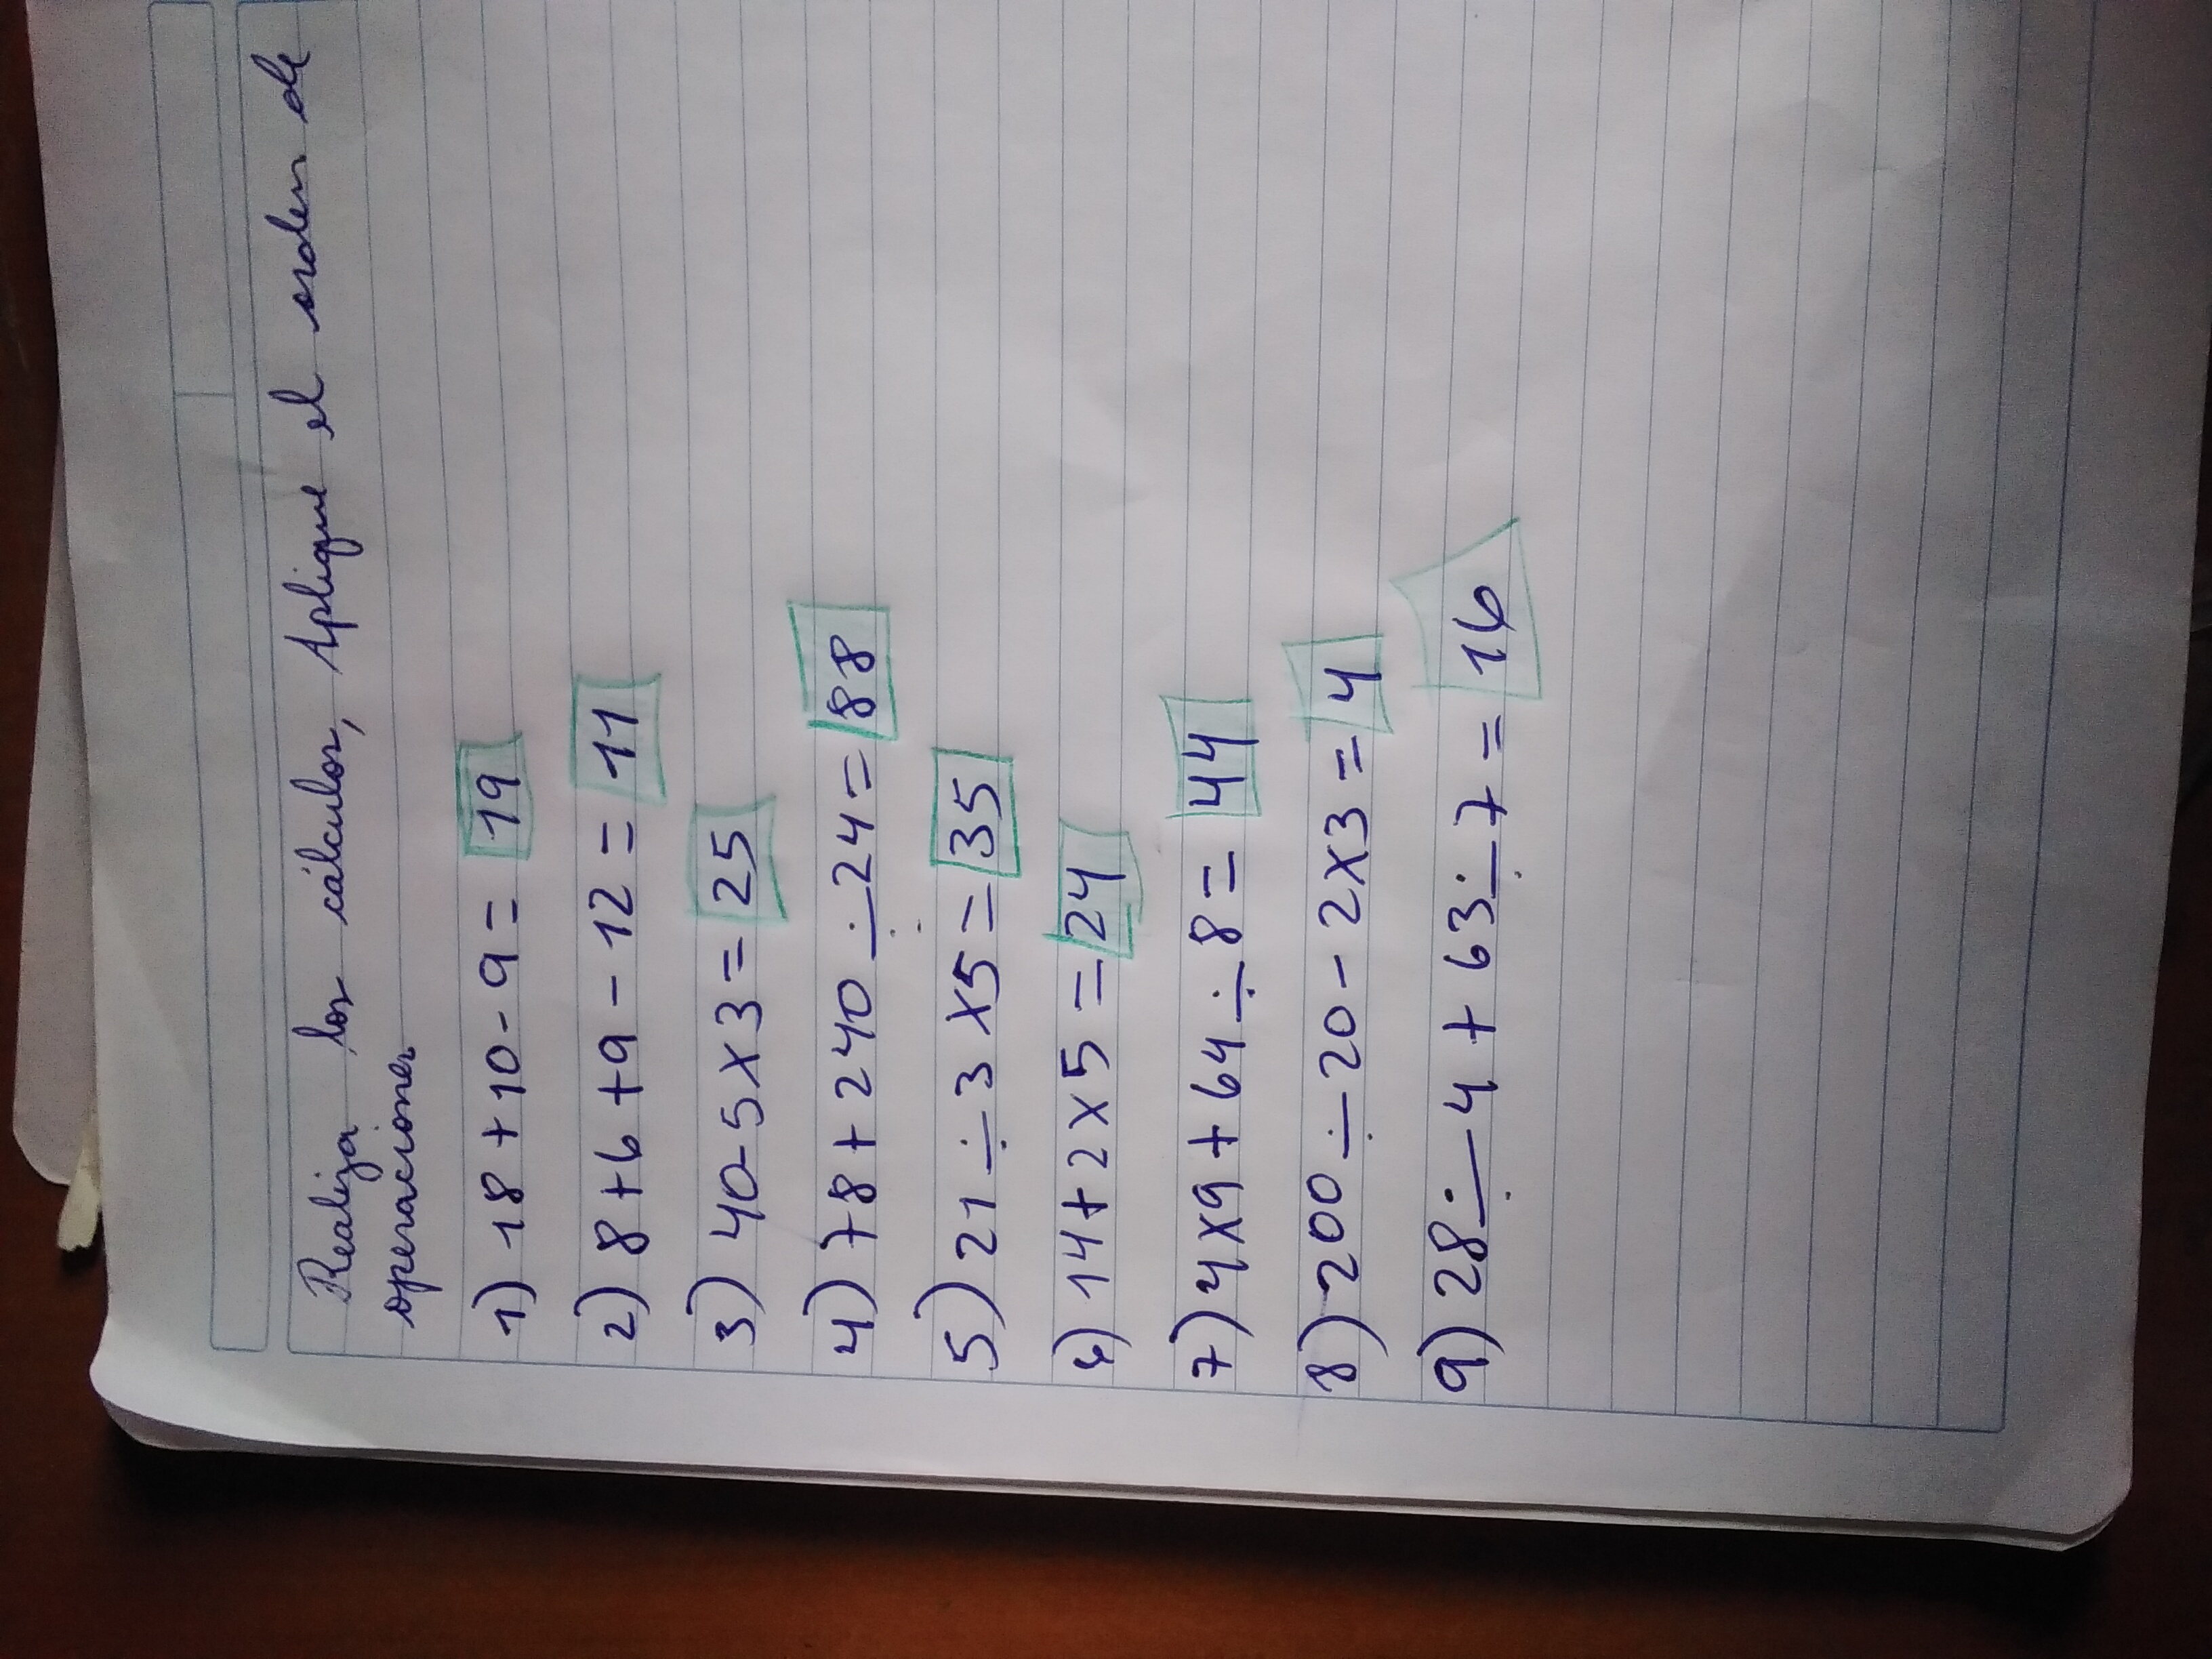 Realiza los cálculos, Aplique el orden de
operaciones
1) 18 + 10 - 9 = 19
2) 8 + 6 + 9 - 12 = 11
3) 40 - 5 x 3 = 25
4) 78 + 240 ÷ 24 = 88
5) 21 ÷ 3 x 5 = 35
6) 14 + 2 x 5 = 24
7) 4 x 9 + 64 ÷ 8 = 44
8) 200 ÷ 20 - 2 x 3 = 4
9) 28 ÷ 4 + 63 ÷ 7 = 16